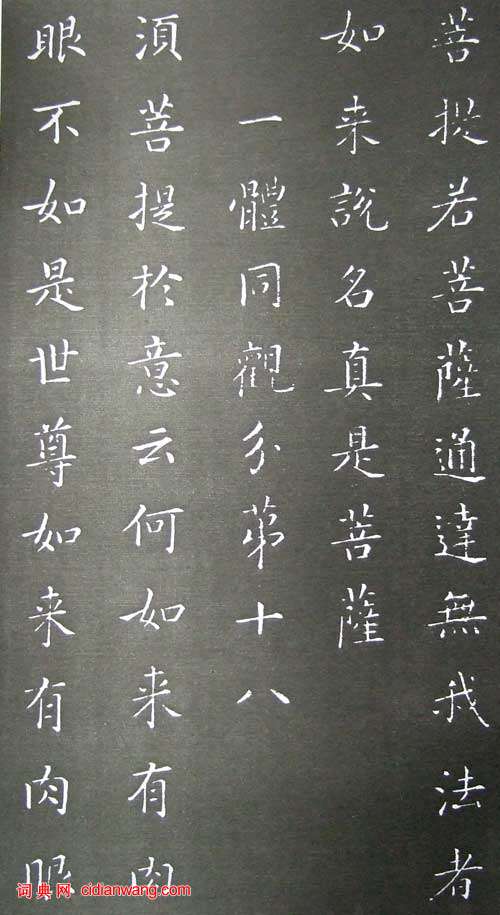 菩提若菩薩通達無我法者
如来說名真是菩薩
一體同觀分苐十八
湏菩提扵意云何如来有肉
眼不如是世尊如来有肉眼
词典网 cidianwang.com